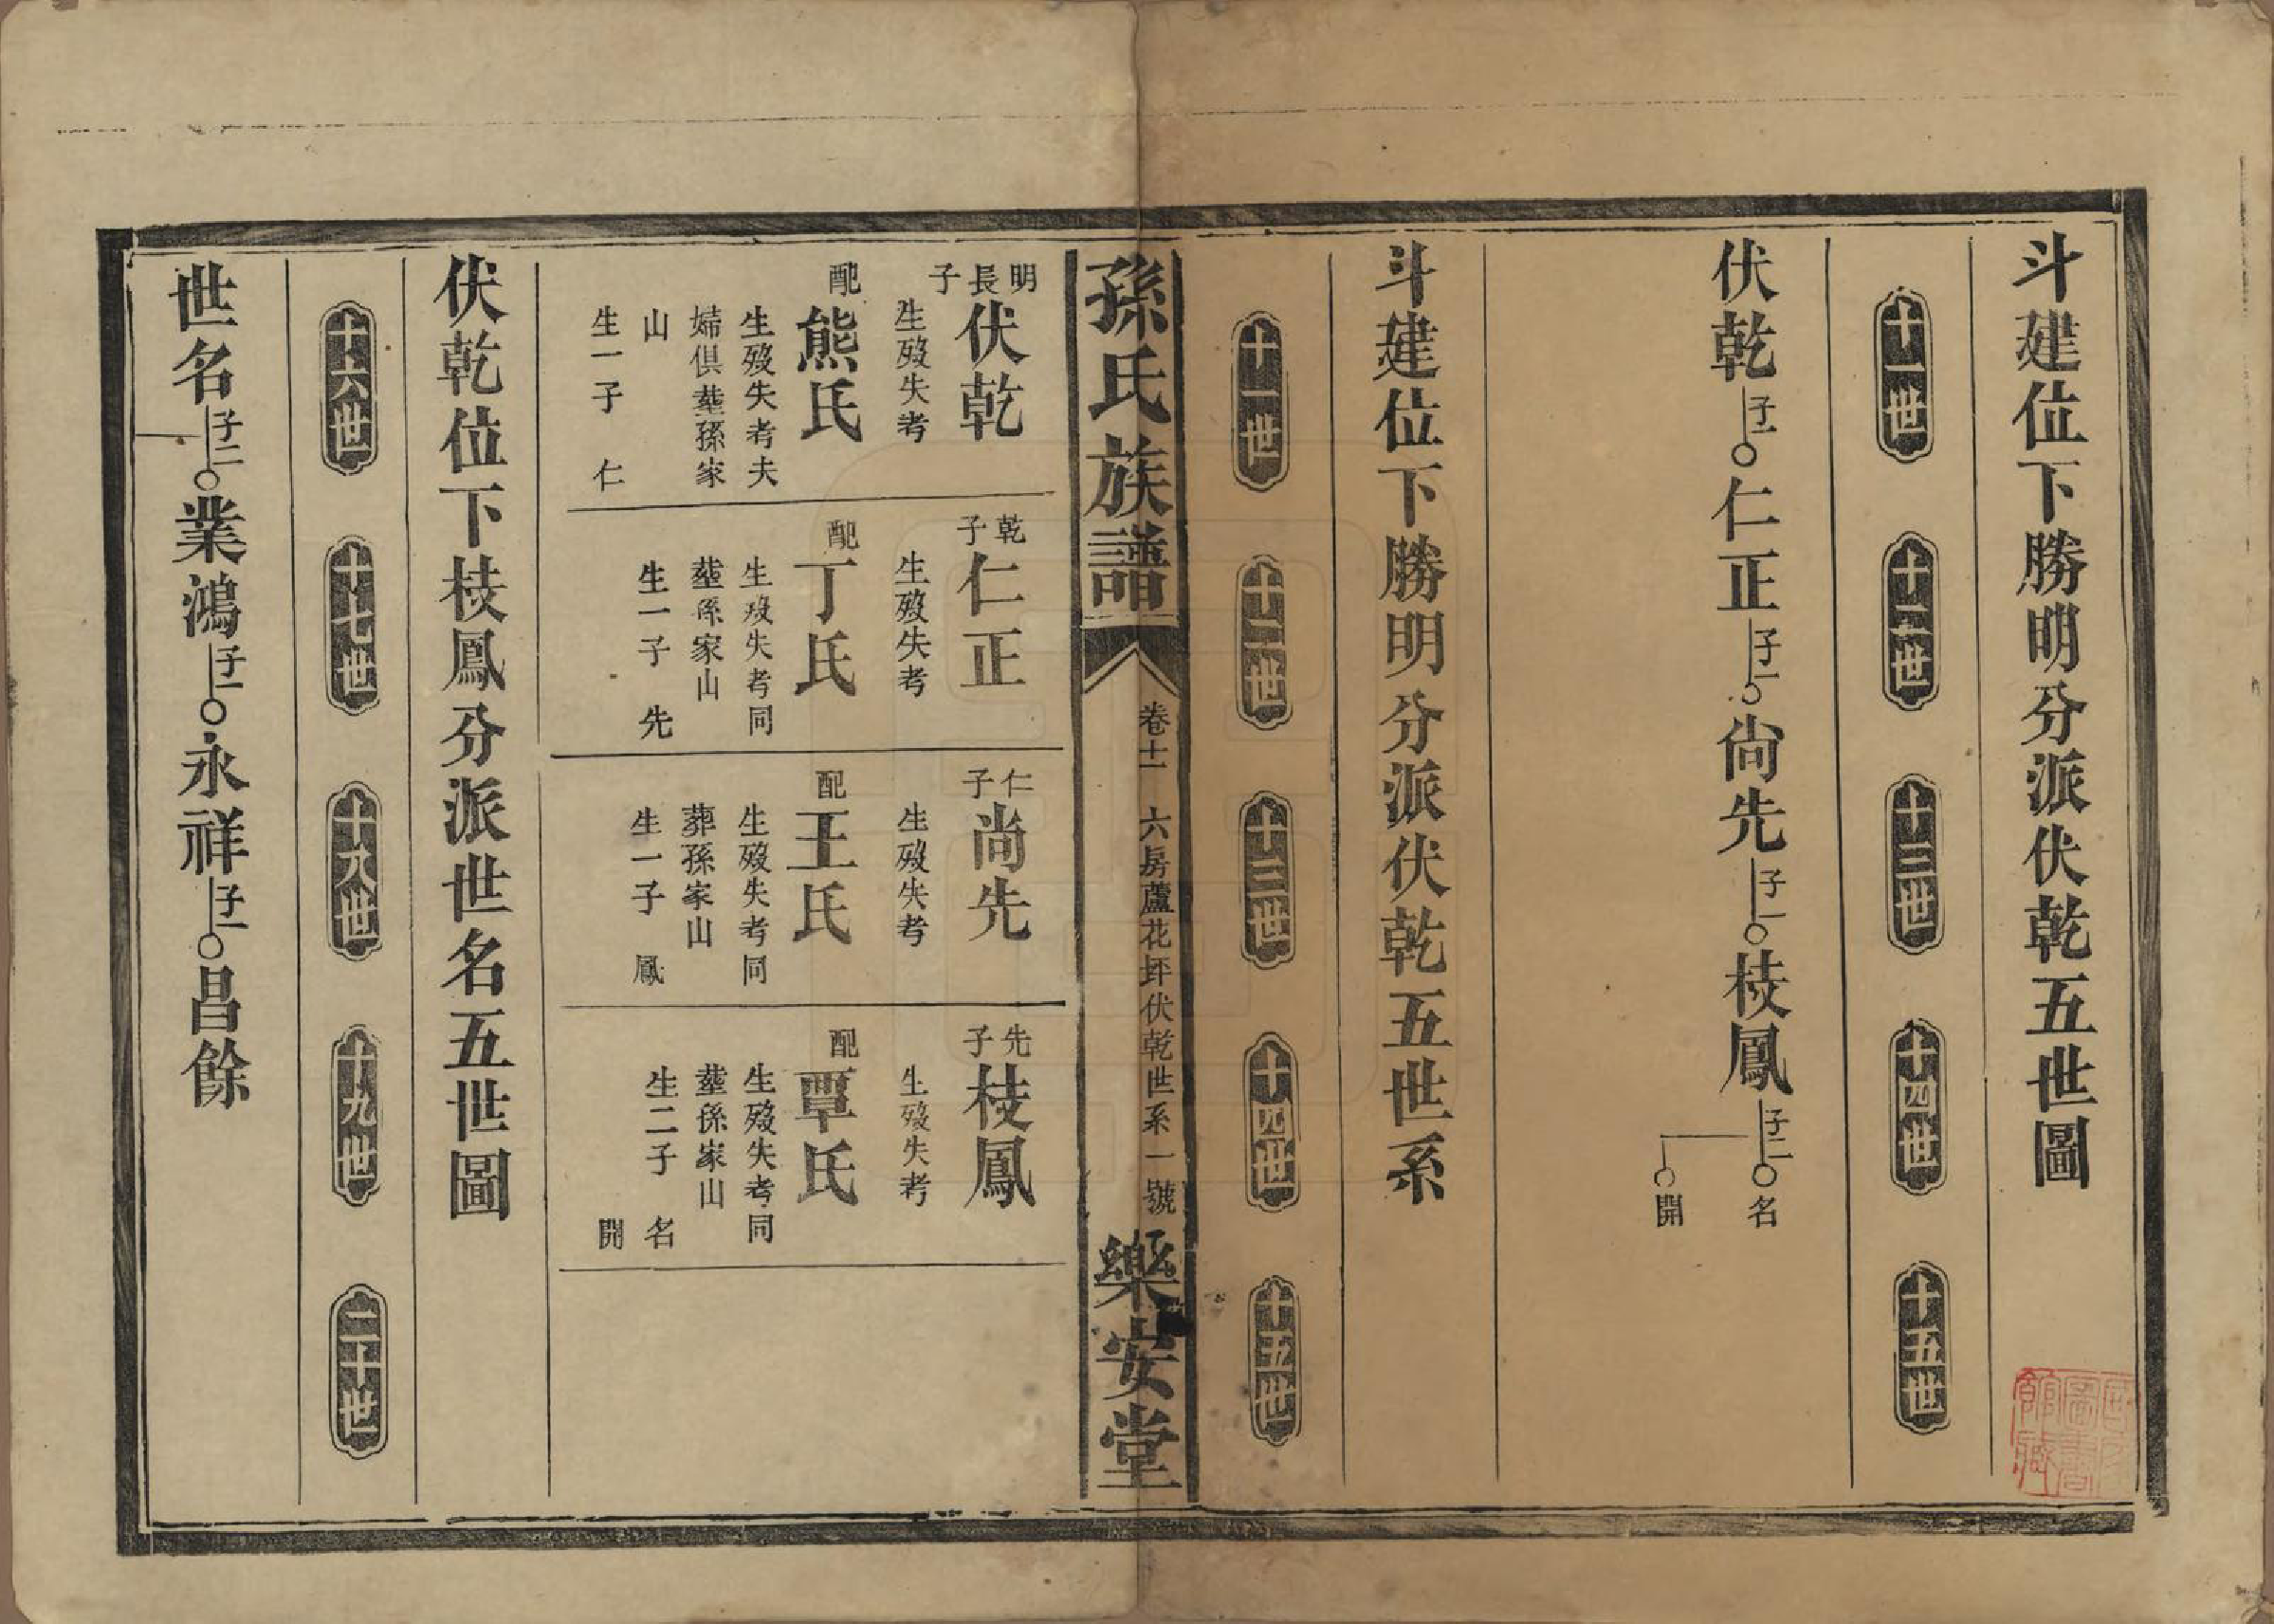 斗建位下勝明分派伏乾五世圖
十一世 十二世 十三世 十四世 十五世
伏乾 子一 仁正 子一 尙先 子一 枝鳳 子二 名
開
斗建位下勝明分派伏乾五世系
十一世 十二世 十三世 十四世 十五世
孫氏族譜 卷十一 六房蘆花坪伏乾世系一號 樂安堂
明長子 伏乾
生殁失考
配 熊氏
生殁失考夫
婦俱塟孫家
山
生一子 仁
乾子 仁正
生殁失考
配 丁氏
生殁失考同
塟孫家山
生一子 先
仁子 尚先
生殁失考
配 王氏
生殁失考同
葬孫家山
生一子 鳳
先子 枝鳳
生殁失考
配 覃氏
生殁失考同
塟孫家山
生二子 名
開
伏乾位下枝鳳分派世名五世圖
十六世 十七世 十八世 十九世 二十世
世名 子二 業鴻 子一 永祥 子一 昌餘